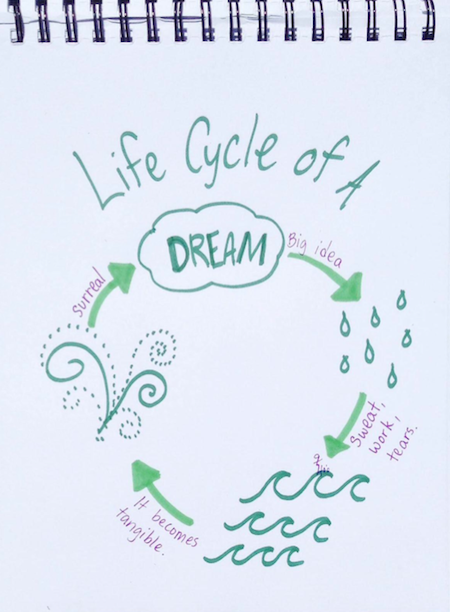 Life Cycle of A
DREAM
Big idea
Sweat,
work,
tears.
It becomes
tangible.
surreal